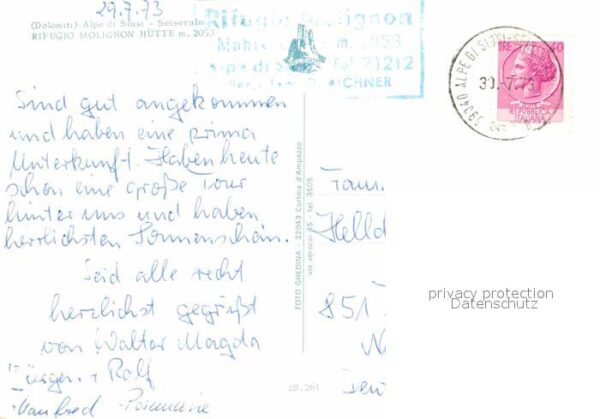 29.7.73
(Dolomiti) Alpe di Siusi - Seiseralm
RIFUGIO MOLIGNON HÜTTE m. 2053
Rifugio Molignon
m. 2053
Alpe di Tel 71212
39040 ALPE DI SIUSI-SEIS
30.-7.73
40
REPUBBLICA
ITALIANA
Sind gut angekommen
und haben eine prima
Unterkunft. Haben heute
schon eine große Tour
hinter uns und haben
herrlichsten Sonnenschein.
Seid alle recht
herzlichst gegrüßt
von Walter Magda
Jürgen + Rolf
Manfred
FOTO GHEDINA - 32043 Cortina d'Ampezzo
via verocai 45 - tel. 3505
28.261
Fam.
Helld
851
privacy protection
Datenschutz